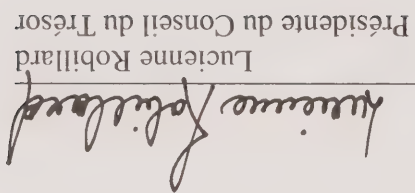 Lucienne Robillard
Lucienne Robillard
Présidente du Conseil du Trésor